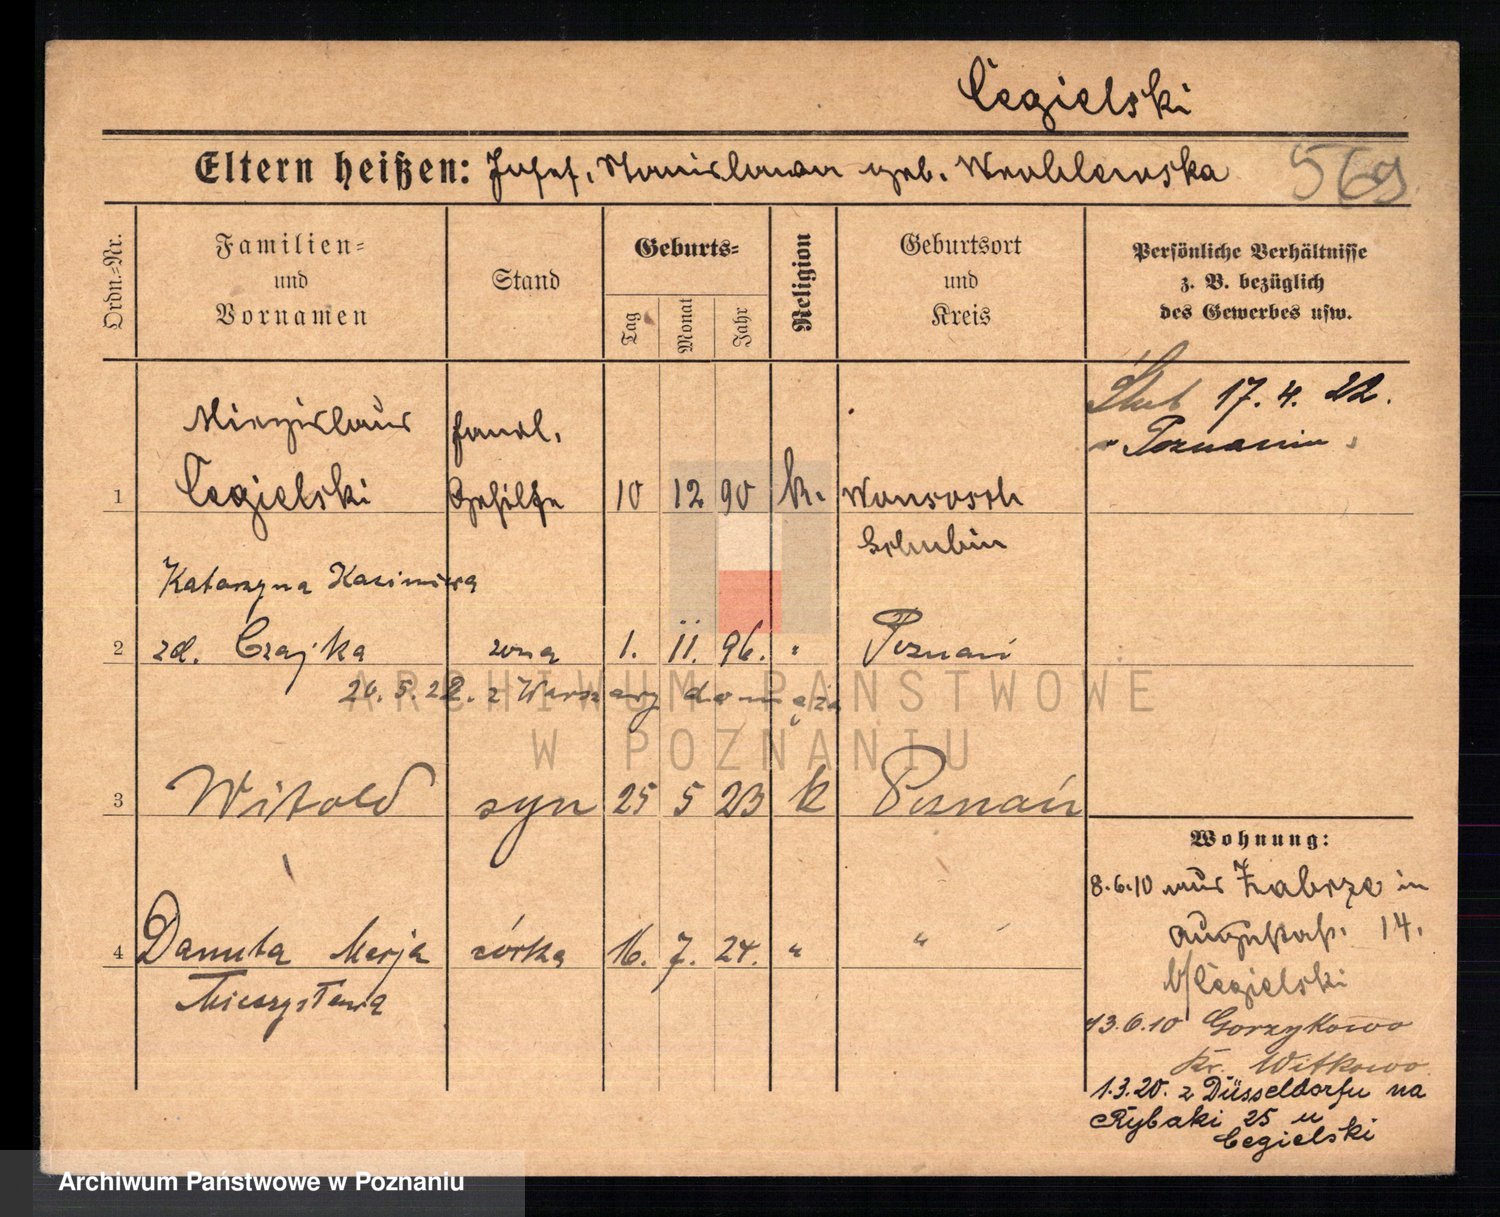 Cegielski
Eltern heißen: Josef, Stanislawa geb. Wroblewska
569
Ordn.=Nr.
Familien=
und
Vornamen
Stand
Geburts=
Tag
Monat
Jahr
Religion
Geburtsort
und
Kreis
Persönliche Verhältnisse
z. B. bezüglich
des Gewerbes usw.
Ślub 17. 4. 22.
w Poznaniu
Miezislaus
Handl.
1 Cegielski Gehilfe 10 12 90 k. Wonsosch
Schubin
Katarzyna Kazimiera
2 zd. Czajka żona 1. 11. 96. " Poznań
20. 5. 22. z Warszawy do męża
3 Witold syn 25 5 23 k Poznań
4 Danuta Marja córka 16. 7. 24. " "
Mieczysława
Wohnung:
8.6.10 aus Zabrze in
Augustastr. 14.
b/Cegielski
13.6.10 Gorzykowo
Kr. Witkowo
1.3.20. z Düsseldorfu na
Rybaki 25 u
Cegielski
ARCHIWUM PAŃSTWOWE
W POZNANIU
Archiwum Państwowe w Poznaniu